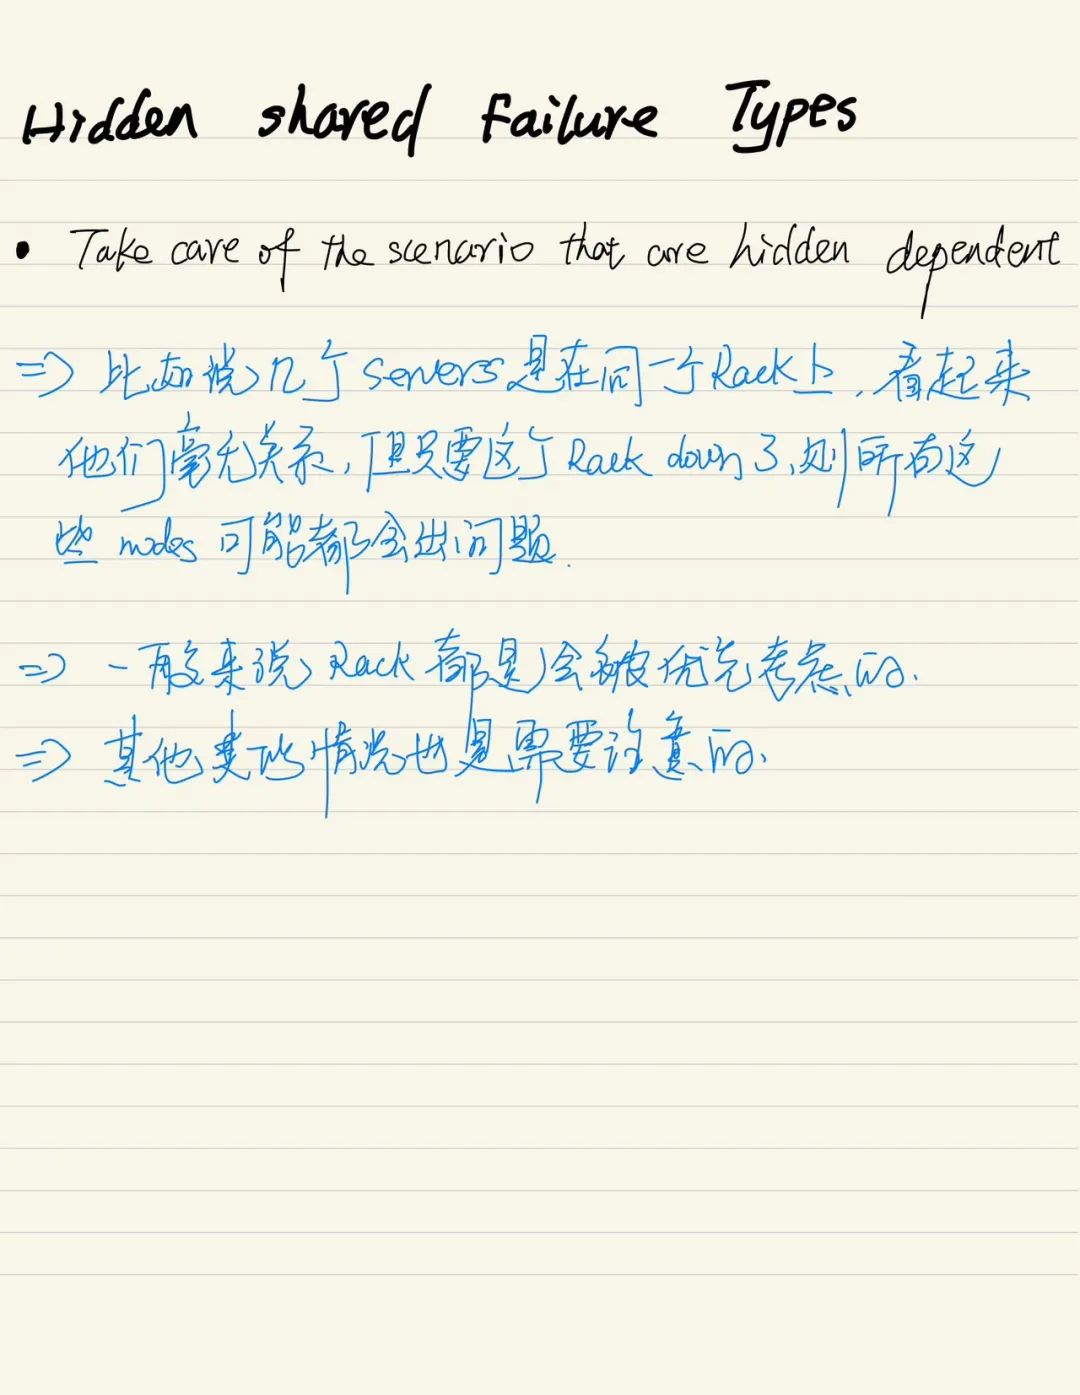 Hidden shared Failure Types
• Take care of the scenario that are hidden dependent
=> 比如说几个 servers 是在同一个 Rack 上, 看起来
他们毫无关系, 但只要这个 Rack down 了, 则所有这
些 nodes 可能都会出问题.
=> 一般来说 Rack 都是会被优先考虑的.
=> 其他类似情况也是需要注意的.